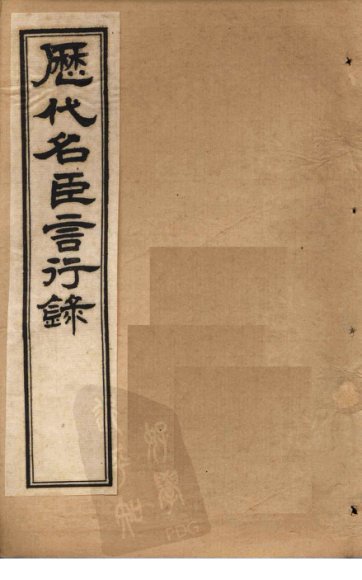 歷代名臣言行錄
PDG